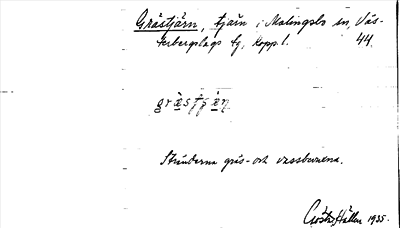 Grästjärn, tjärn i Malingsbo sn, Väs-
terbergslags tg, Kopp. l. 44.
Stränderna gräs- och vassbevuxna.
Gösta Hallen 1935.